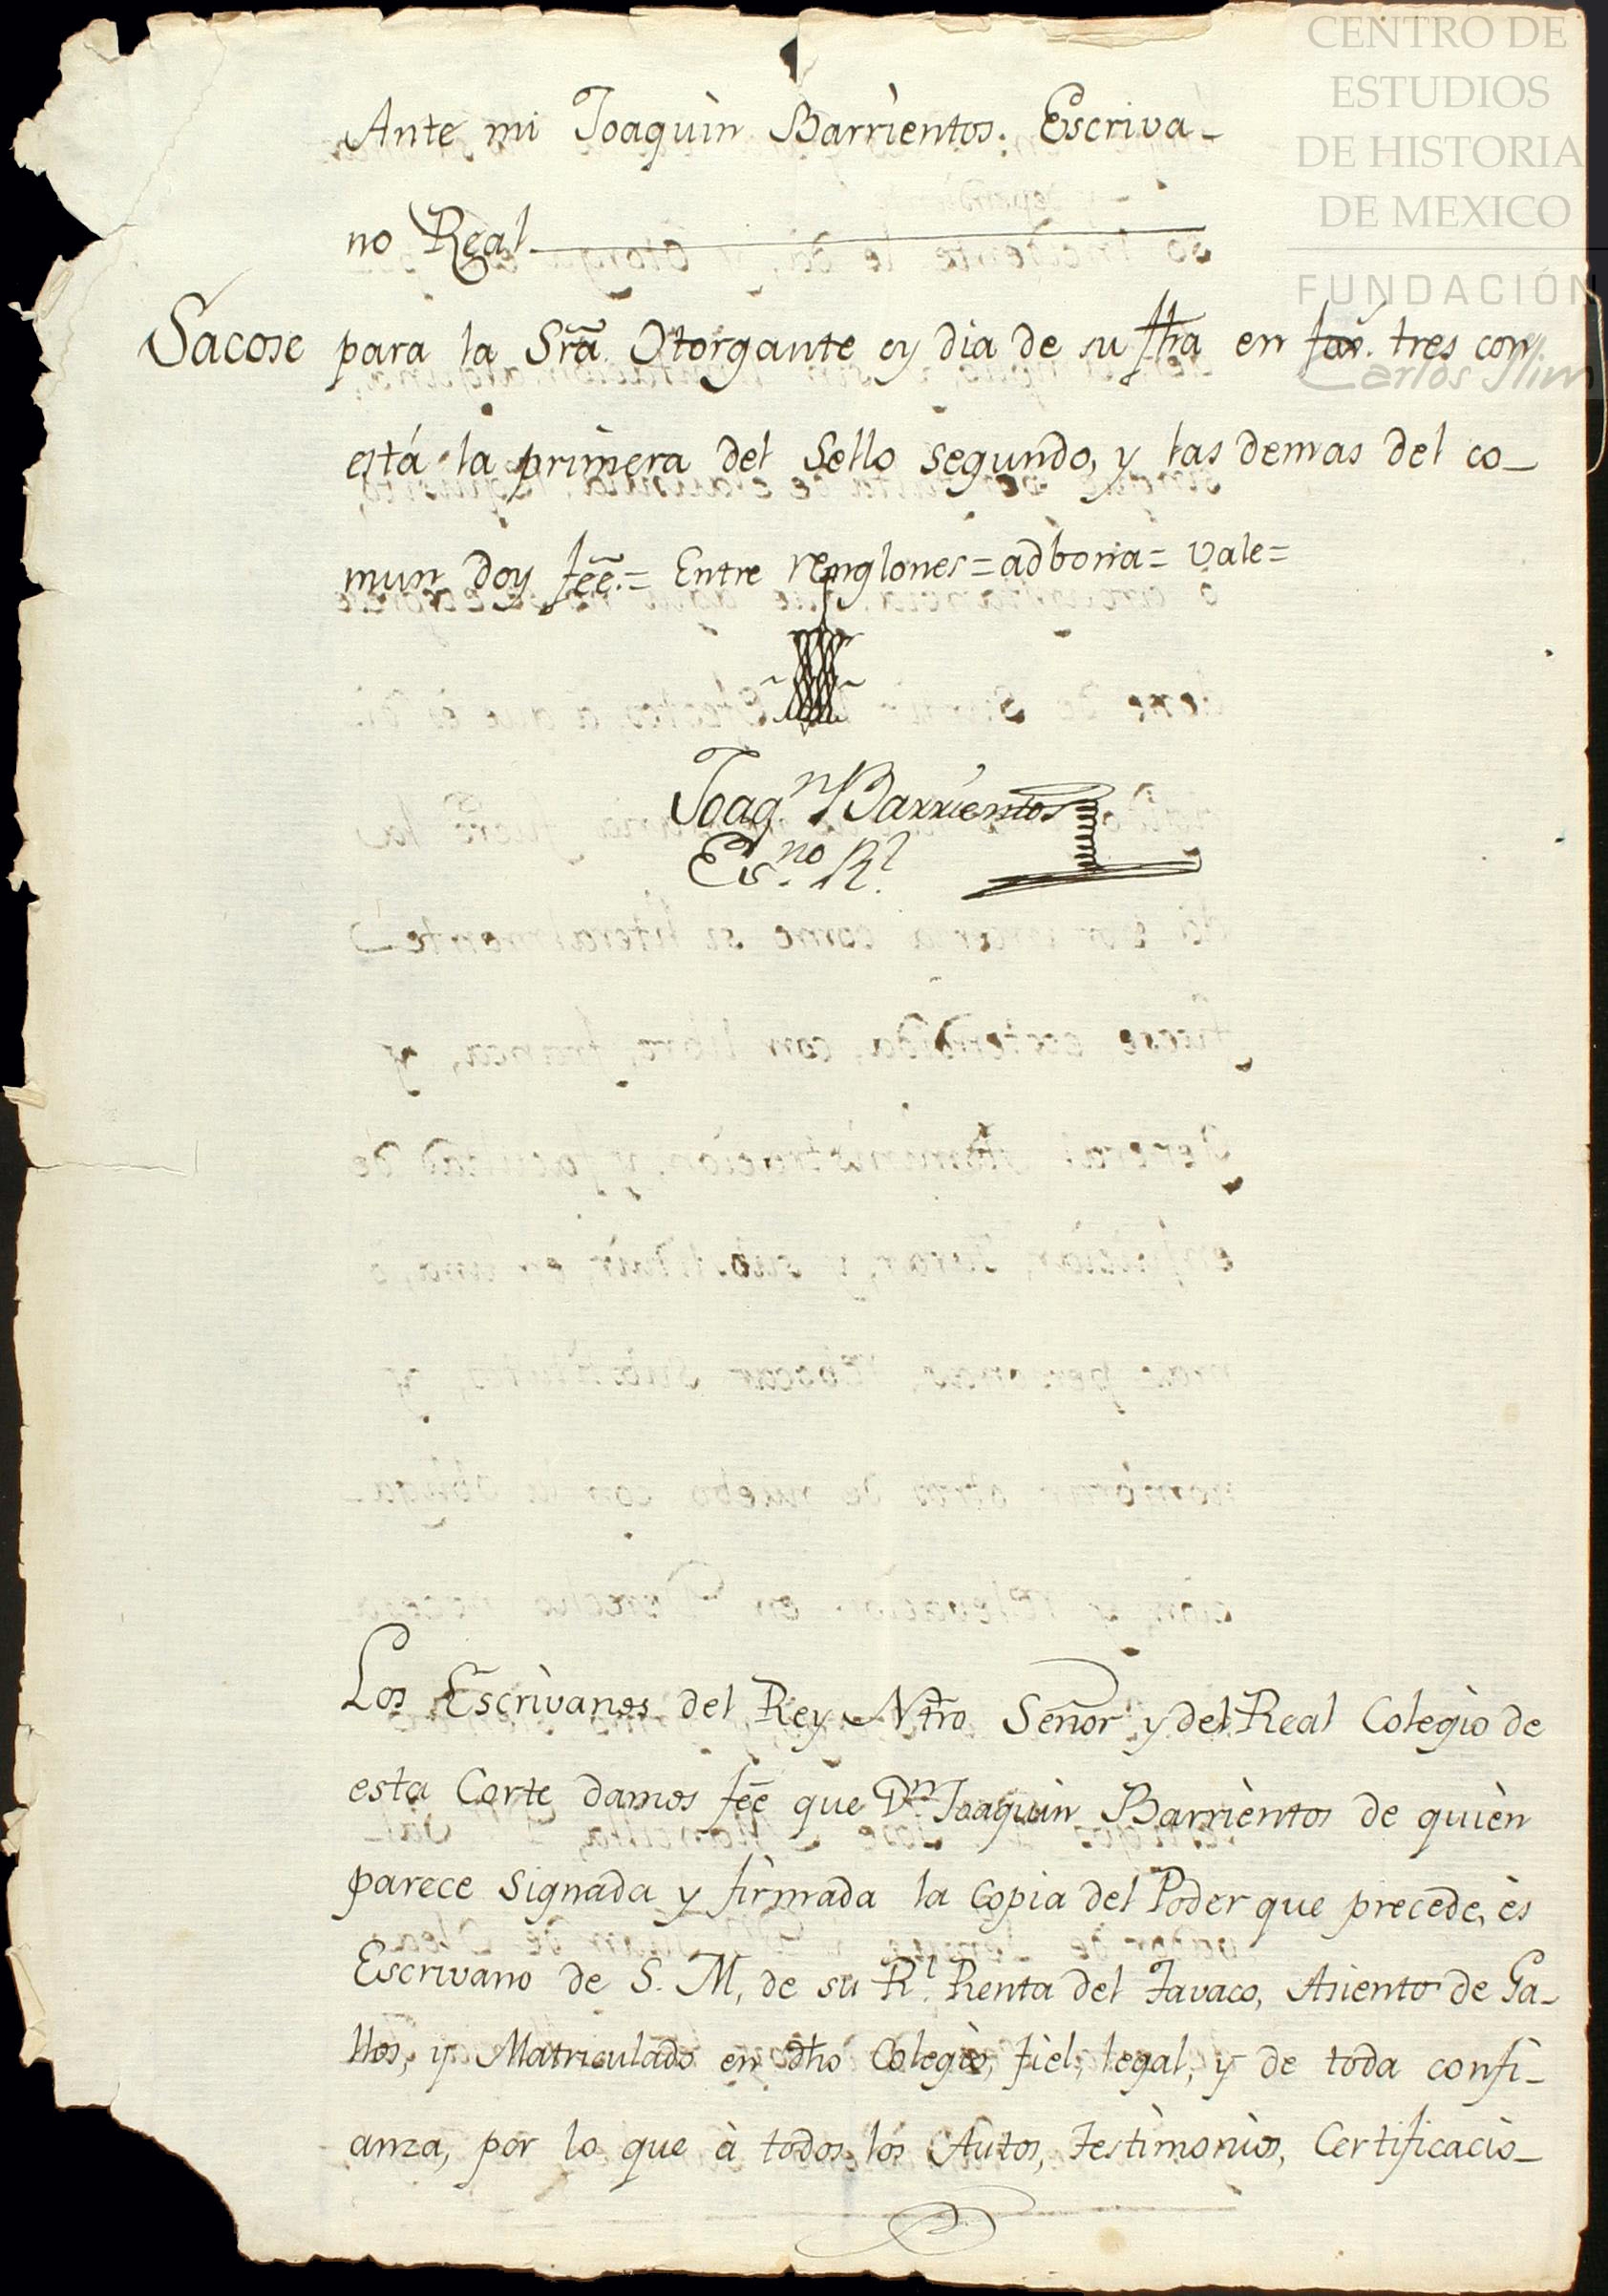 Ante mi Joaquin Barrientos. Escriva-
no Real
Sacose para la Srã. Otorgante oy dia de su ftha en fox.s tres con
está la primera del Sello segundo, y las demas del co-
mun doy feẽ.= Entre renglones = adbona = vale =
Joaq.n Barrientos
Es.no Rl.
Los Escrivanos del Rey Ntro Señor y del Real Colegio de
esta Corte damos feẽ que Dn Joaquin Barrientos de quien
parece signada y firmada la Copia del Poder que precede, es
Escrivano de S. M, de su Rl. Renta del Tavaco, Asiento de Ga-
llos, y Matriculado en dho Colegio, fiel, legal, y de toda confi-
anza, por lo que à todos los Autos, Testimonios, Certificacio-
CENTRO DE
ESTUDIOS
DE HISTORIA
DE MEXICO
FUNDACIÓN
Carlos Slim